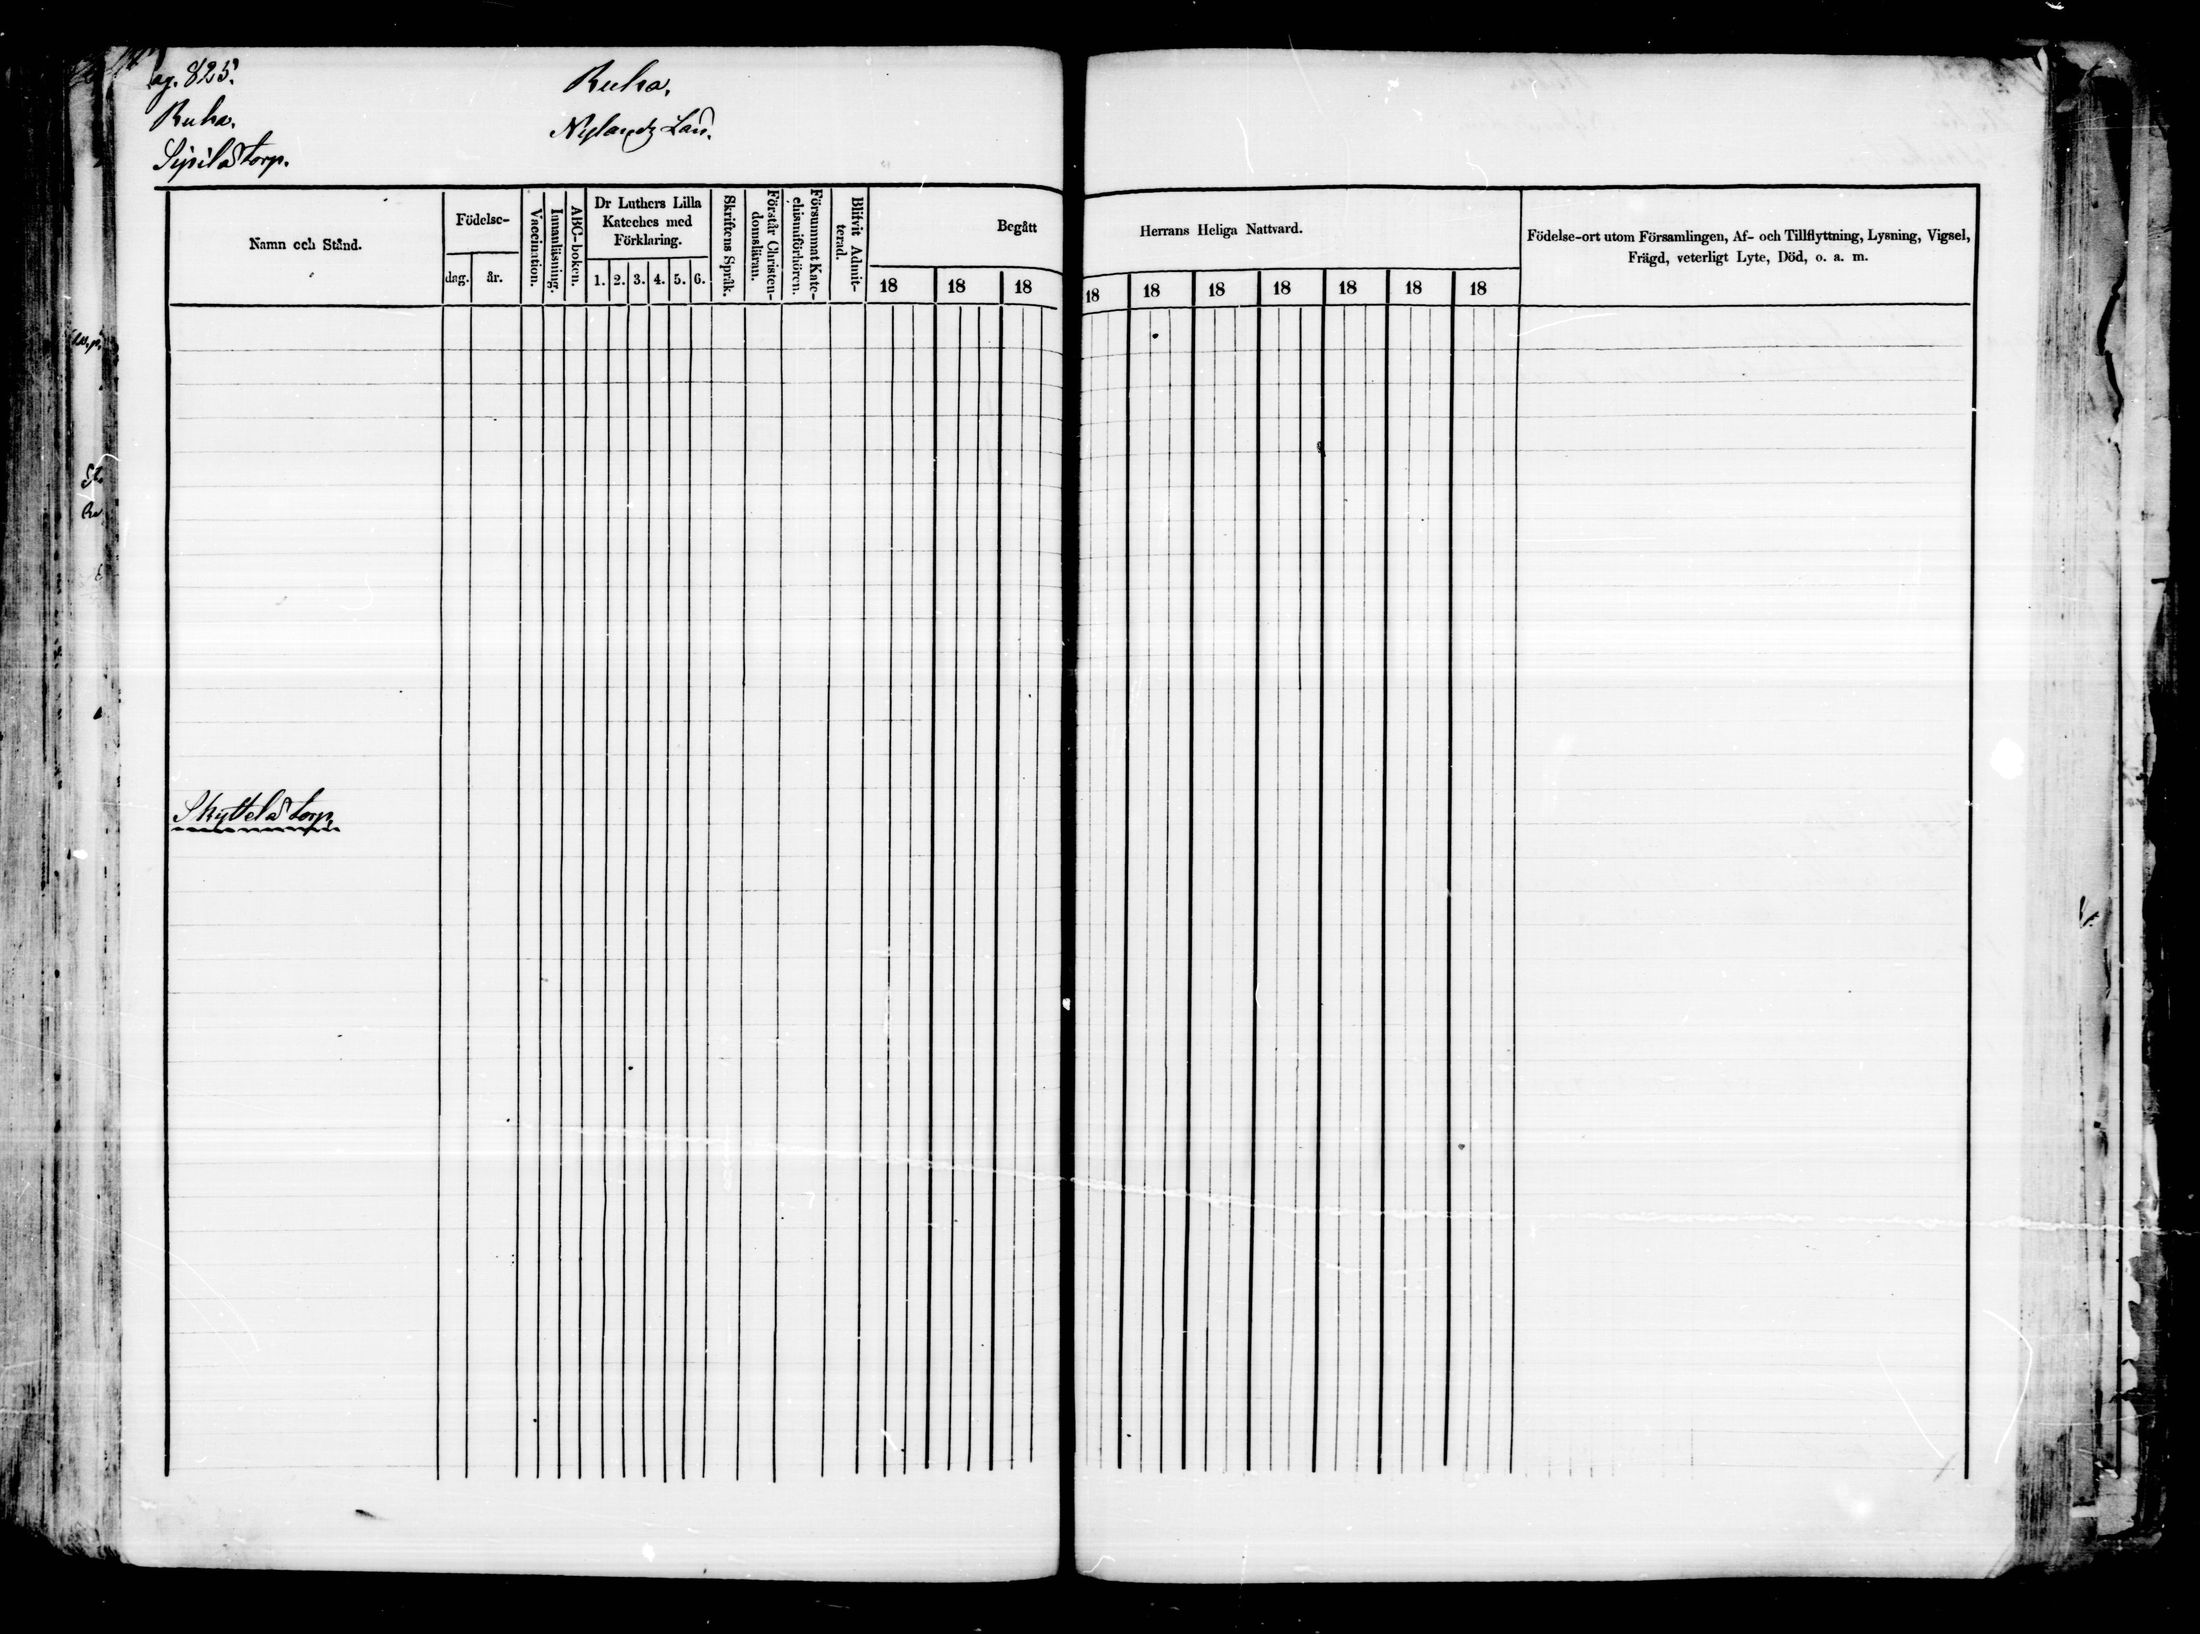 Pag. 825.
Ruha.
Sipilä Torp.
Ruha.
Nylandz Län.
Namn och Stånd.
Födelse-
dag.
år.
Vaccination.
Innanläsning.
ABC-boken.
Dr Luthers Lilla
Kateches med
Förklaring.
1. 2. 3. 4. 5. 6.
Skriftens Språk.
Förstår Christen-
domsläran.
Försummat Kate-
chismiförhören.
Blifvit Admit-
terad.
Begått
18 18 18
Herrans Heliga Nattvard.
18 18 18 18 18 18 18
Födelse-ort utom Församlingen, Af- och Tillflyttning, Lysning, Vigsel,
Frägd, veterligt Lyte, Död, o. a. m.
Skyttelä Torp.